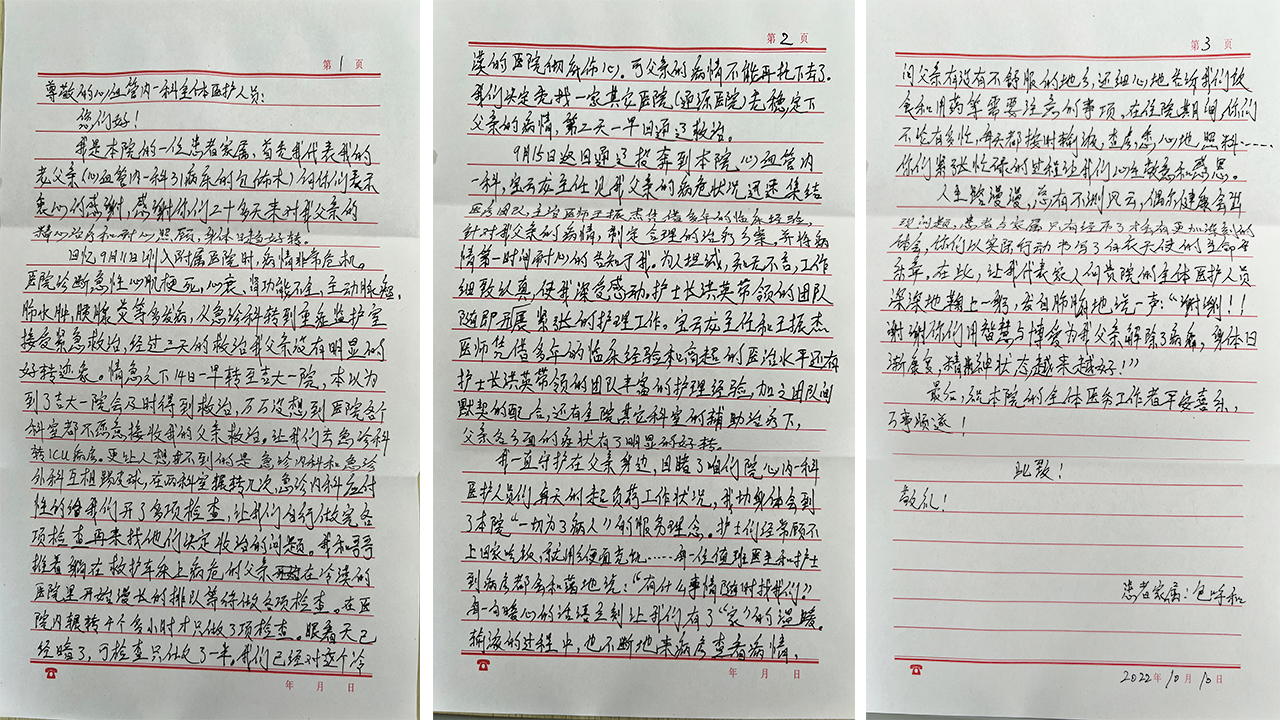 第 1 页
尊敬的心血管内一科全体医护人员:
您们好!
我是本院的一位患者家属,首先我代表我的
老父亲(心血管内一科31病床的包佈木)向你们表示
衷心的感谢,感谢你们二十多天来对我父亲的
精心治疗和耐心照顾,身体日趋好转。
回忆9月11日刚入附属医院时,病情非常危机。
医院诊断急性心肌梗死,心衰、肾功能不全,主动脉瘤,
肺水肿,胰腺炎等多发病,从急诊科转到重症监护室
接受紧急救治,经过三天的救治我父亲没有明显的
好转迹象。情急之下14日一早转至吉大一院,本以为
到了吉大一院会及时得到救治,万万没想到医院各个
科室都不愿意接收我的父亲救治。让我们去急诊科
转ICU病房。更让人想书不到的是急诊内科和急诊
外科互相踢皮球,在两科室辗转几次,急诊内科应付
性的给我们开了多项检查,让我们自行做完各
项检查再来找他们决定收治的问题。我和哥哥
推着躺在救护车床上病危的父亲在冷漠的
医院里开始漫长的排队等待做各项检查。在医
院内辗转4个多小时才只做了3项检查。眼看天已
经暗了,可检查只做了一半。我们已经对这个冷
年 月 日
第 2 页
漠的医院彻底伤心。可父亲的病情不能再托下去了.
我们决定先找一家其它医院,(通源医院)先稳定下
父亲的病情,第二天一早回通辽救治。
9月15日返回通辽投奔到本院心血管内
一科,宝云龙主任见我父亲的病危状况迅速集结
医疗团队,主治医师王振杰凭借多年的临床经验,
针对我父亲的病情,制定合理的治疗方案,并将病
情第一时间耐心的告知于我。为人坦诚,知无不言,工作
细致认真,使我深受感动。护士长洪英带领的团队
随即开展紧张的护理工作。宝云龙主任和王振杰
医师凭借多年的临床经验和高超的医治水平还有
护士长洪英带领的团队丰富的护理经验,加之团队间
默契的配合,还有全院其它科室的辅助治疗下,
父亲各方面的症状有了明显的好转。
我一直守护在父亲身边,目睹了咱们院心内一科
医护人员们每天的超负荷工作状况,我切身体会到
了本院“一切为了病人”的服务理念。护士们经常顾不
上回家吃饭,就用方便面充饥……每一位值班医生和护士
到病房都会和蔼地说:“有什么事情随时找我们”
每一句暖心的话语立刻让我们有了“家”的温暖。
输液的过程中,也不断地来病房查看病情,
年 月 日
第 3 页
问父亲有没有不舒服的地方,还细心地告诉我们饮
食和用药等需要注意的事项。在住院期间,你们
不论有多忙,每天都按时输液,查房,悉心地照料……
你们紧张忙碌的过程让我们心生敬意和感恩。
人生路漫漫,总有不测风云,偶尔健康会出
现问题,患者与家属只有经历了才会有更加深刻的
体会,你们以实际行动书写了白衣天使的生命
乐章,在此,让我代表家人向贵院的全体医护人员
深深地鞠上一躬,发自肺腑地说一声:“谢谢!!
谢谢你们用智慧与博爱为我父亲解除了病痛,身体日
渐康复,精神状态越来越好!”
最后,祝本院的全体医务工作者平安喜乐,
万事顺遂!
此致!
敬礼!
患者家属:包呼和
2022年10月10日